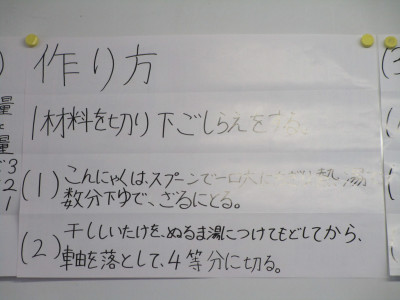 作り方
1材料を切り下ごしらえをする。
(1)こんにゃくは、スプーンで一口大に
数分下ゆで、ざるにとる。
(2)干ししいたけを、ぬるま湯につけてもどしてから、
軸を落として、4等分に切る。
量
量
3
2
1
(3